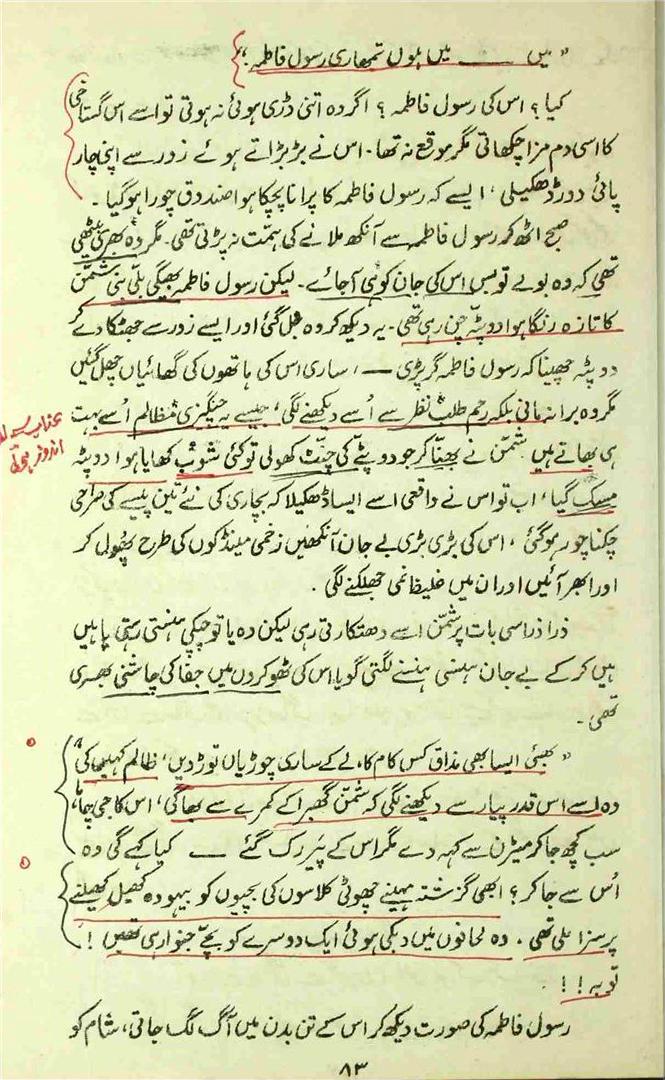 " میں ــــــ میں ہوں تمھاری رسول فاطمہ "
کیا؟ اس کی رسول فاطمہ ؟ اگر وہ اتنی ڈری ہوئی نہ ہوتی تو اسے اس گستاخی
کا اسی دم مزا چکھاتی مگر موقع نہ تھا۔ اس نے بڑبڑاتے ہوئے زور سے اپنی چار
پائی دور ڈھکیلی ، ایسے کہ رسول فاطمہ کا پرانا پچکا ہوا صندوق چورا ہوگیا ۔
صبح اٹھ کر رسول فاطمہ سے آنکھ ملانے کی ہمت نہ پڑتی تھی۔ مگر وہ بھری بیٹھی
تھی کہ وہ بولے تو بس اس کی جان کو ہی آجائے۔ لیکن رسول فاطمہ بھیگی بلی بنی شمّن
کا تازہ رنگا ہوا دوپٹہ چن رہی تھی۔ یہ دیکھ کر وہ جل گئی اور ایسے زور سے جھٹکا دے کر
دوپٹہ چھینا کہ رسول فاطمہ گر پڑی ــــ ، ساری اس کی ہاتھوں کی گھائیاں چھل گئیں
مگر وہ برا نہ مانی بلکہ رحم طلب نظر سے اُسے دیکھنے لگی ، جیسے یہ چنگیزی مظالم اُسے بہت
ہی بھاتے ہیں۔ شمّن نے بھنا کر جو دوپٹے کی چنٹ کھولی تو کئی شوب کھایا ہوا دوپٹہ
مسک گیا ، اب تو اس نے واقعی اسے ایسا ڈھکیلا کہ بچاری کی نئے تین پیسے کی صراحی
چکنا چور ہوگئی ، اس کی بڑی بڑی بے جان آنکھیں زخمی مینڈکوں کی طرح پھول کر
اور ابھر آئیں اور ان میں غلیظ نمی جھلکنے لگی ۔
ذرا ذرا سی بات پر شمّن اسے دھتکارتی رہی لیکن وہ یا تو چپکی ہنستی رہتی یا ہیں
ہیں کر کے بے جان ہنسی ہنسنے لگتی گویا اس کی ٹھوکروں میں جفا کی چاشنی بھری
تھی ۔
" بھئی ایسا بھی مذاق کس کام کا ، لے کے ساری چوڑیاں توڑ دیں ، ظالم کہیں کی "
وہ اسے اس قدر پیار سے دیکھنے لگی کہ شمّن گھبرا کے کمرے سے بھاگی ، اس کا جی چاہا
سب کچھ جا کر میٹرن سے کہہ دے مگر اس کے پیر رک گئے ــــ کیا کہے گی وہ
اُس سے جا کر؟ ابھی گزشتہ مہینے چھوٹی کلاسوں کی بچیوں کو بیہودہ کھیل کھیلنے
پر سزا ملی تھی ۔ وہ لحافوں میں دبکی ہوئی ایک دوسرے کو بچے جنوا رہی تھیں !
توبہ !! ۔
رسول فاطمہ کی صورت دیکھ کر اس کے تن بدن میں آگ لگ جاتی ، شام کو
۸۳